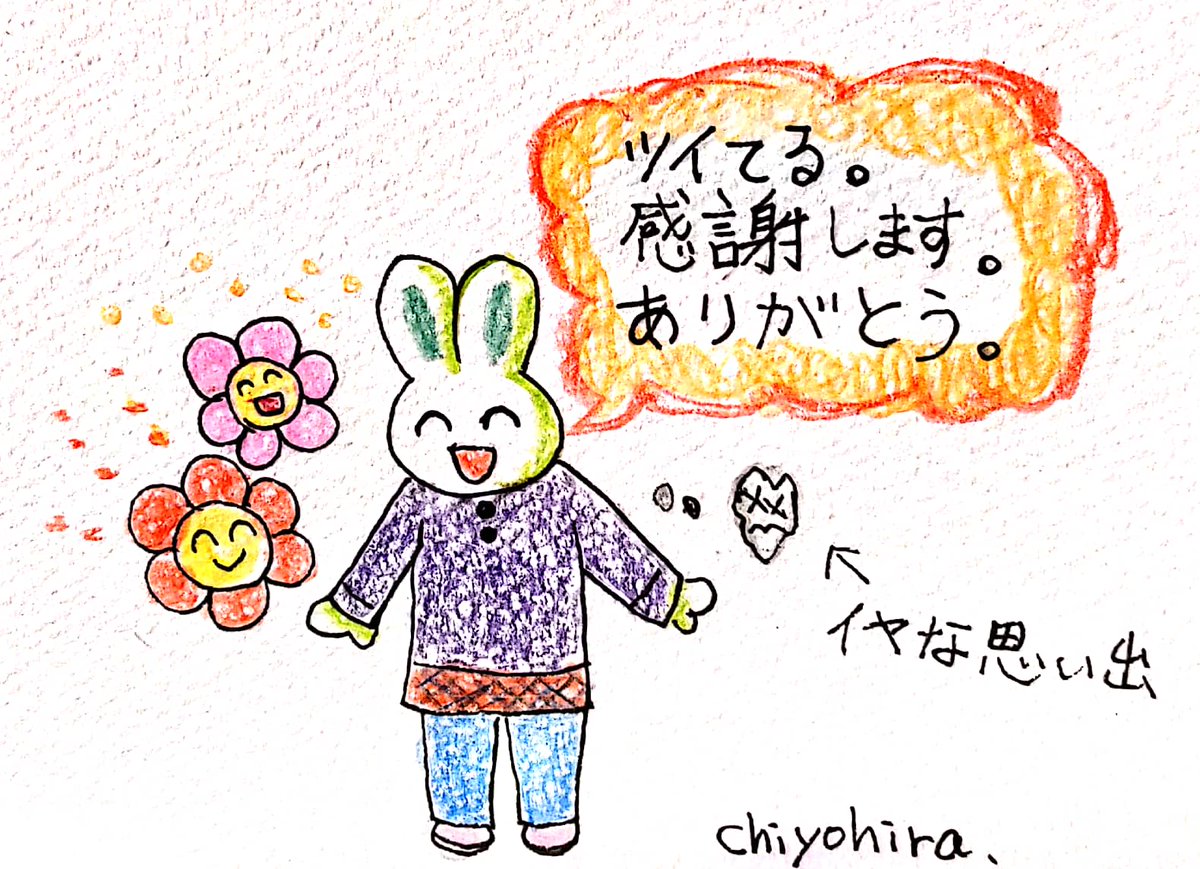 ツイてる。
感謝します。
ありがとう。
イヤな思い出
chiyohira.